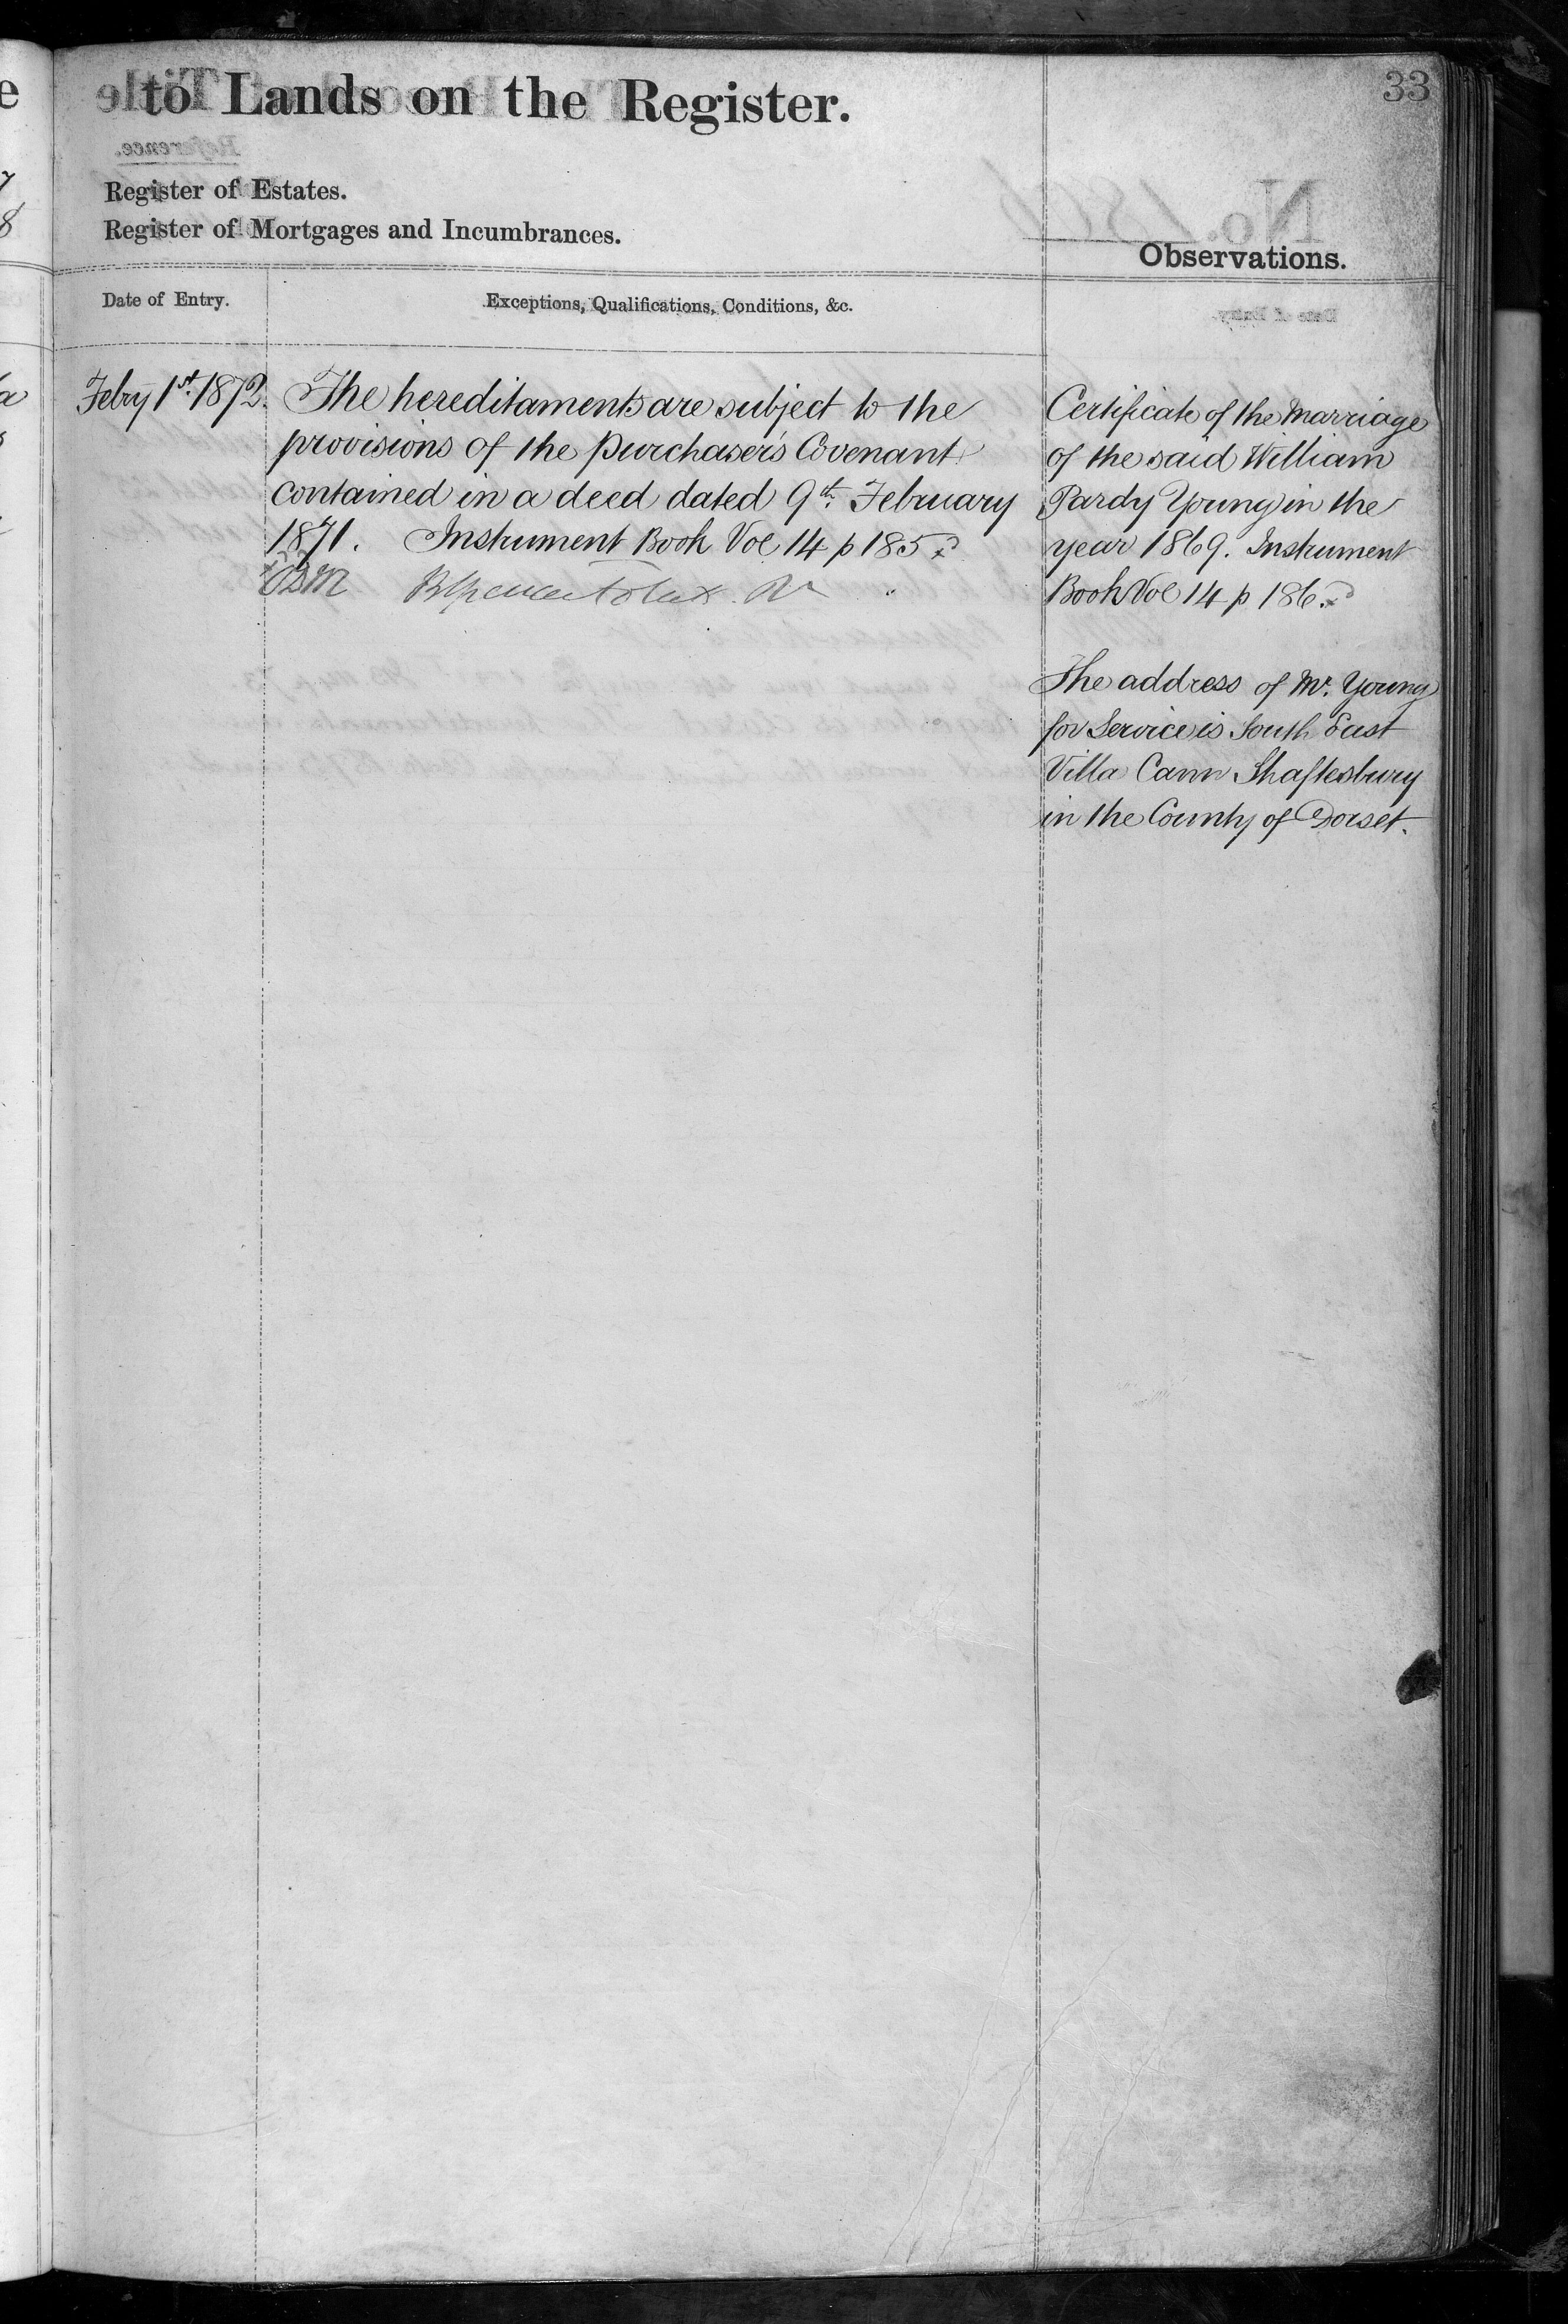 33
to Lands on the Register.
Register of Estates.
Register of Mortgages and Incumbrances.
Observations.
Date of Entry.
Exceptions, Qualifications, Conditions, &c.
Febry 1st. 1872.
The hereditaments are subject to the
provisions of the purchaser's Covenant
contained in a deed dated 9th. February
1871. Instrument Book Vol 14 p 185
Certificate of the Marriage
of the said William
Pardy Young in the
year 1869. Instrument
Book Vol 14 p 186.
The address of Mr. Young
for Service is South East
Villa Cann Shaftesbury
in the County of Dorset.